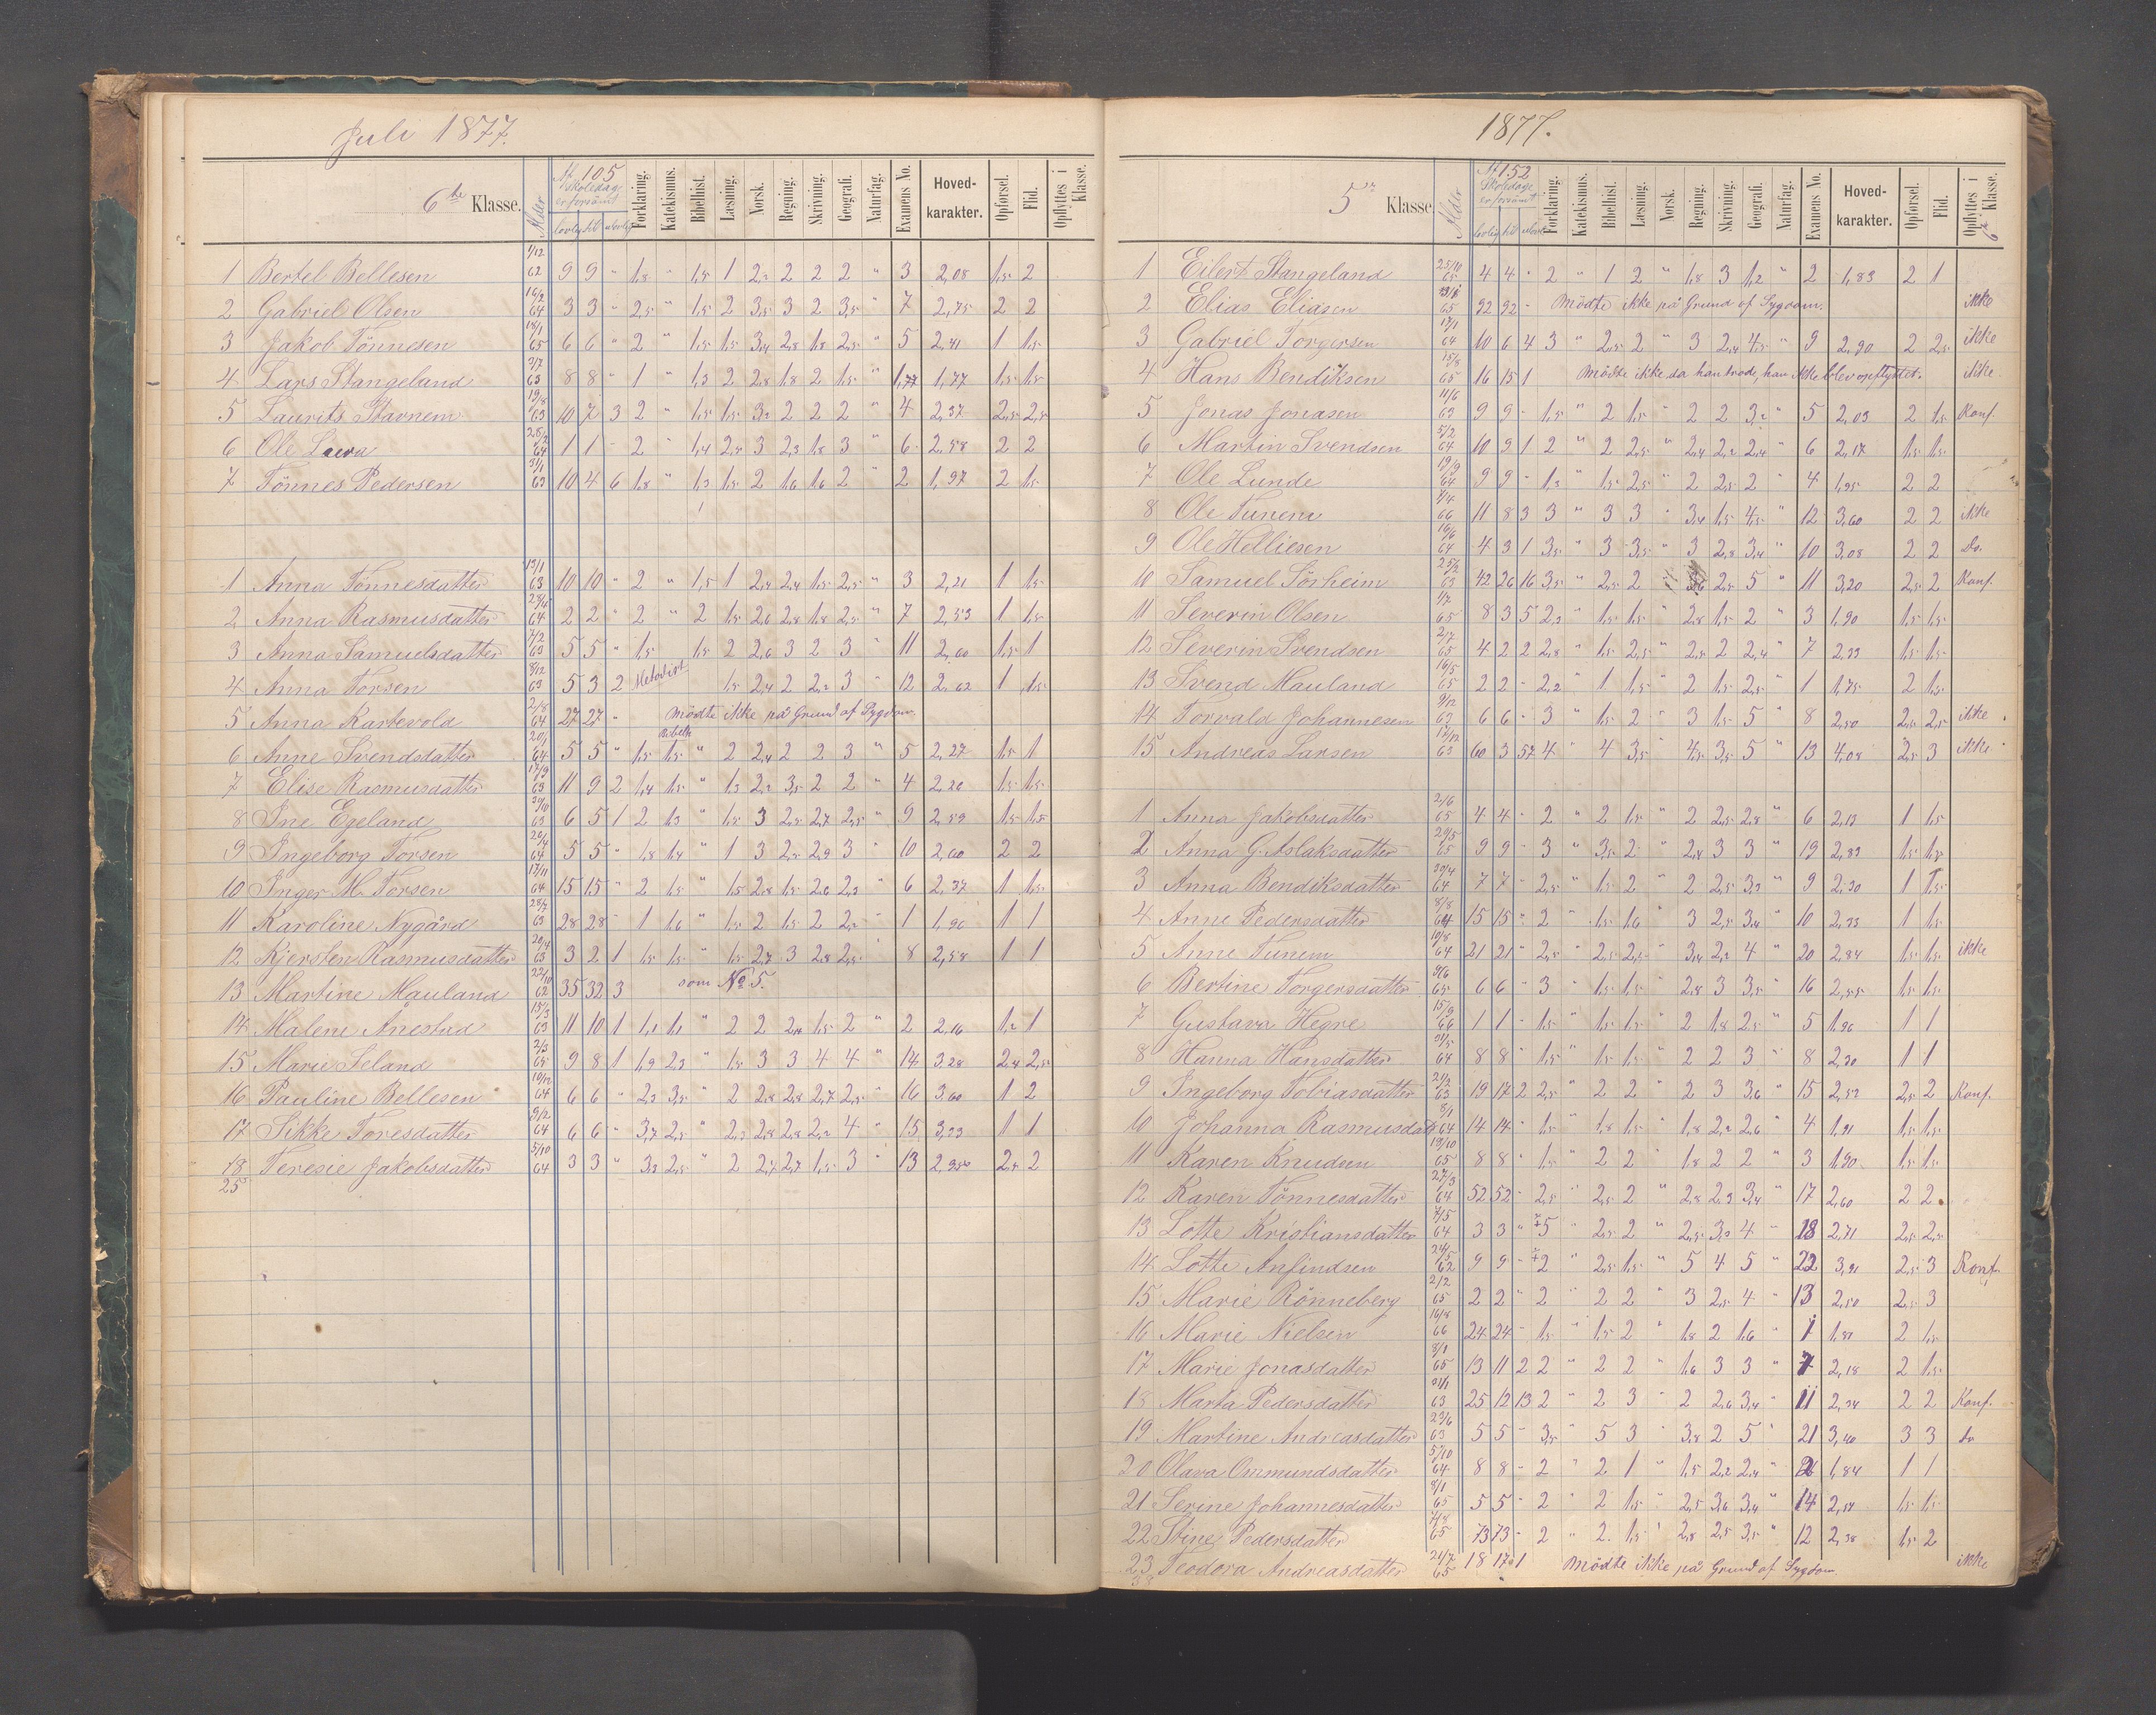 Juli 1877.
6te Klasse. Alder Af 105 Skoledage er forsømt lovlig til ulovlig Forklaring. Katekismus. Bibelhist. Læsning. Norsk. Regning. Skrivning. Geografi. Naturfag. Examens No. Hoved-karakter. Opførsel. Flid. Opflyttes i Klasse.
1 Bertel Bellesen 1/12 62 9 9 " 1,8 " 1,5 1 2,2 2 2 2 " 3 2,08 1,5 2
2 Gabriel Olsen 16/2 64 3 3 - 2,5 " 1,5 2 3,5 3 2 3,5 " 7 2,75 2 2
3 Jakob Tönnesen 18/1 65 6 6 " 2 " 1,5 1,5 3,4 2,8 1,8 2,5 " 5 2,41 1 1,5
4 Lars Stangeland 2/7 63 8 8 " 1 " 1,3 2 2,8 1,8 2 1,5 " 1,77 1,5 1,5
5 Laurits Stavnem 19/8 63 10 7 3 2 " 1,5 1,5 3,2 2 2 2 " 4 2,37 2,5 2,5
6 Ole Lura 64 1 1 - 2 " 1,4 2,5 3 2,3 1,8 3 " 6 2,58 2 2
7 Tönnes Pedersen 31/1 63 10 4 6 1,8 " 1,3 1,5 2 1,6 1,6 2 " 2 1,97 2 1,5
1 Anna Tönnesdatter 13/1 63 10 10 " 2 " 1,5 1 2,4 2,4 1,5 2,5 " 3 2,21 1 1,5
2 Anna Rasmusdatter 28/4 64 2 2 " 2 " 2 1,5 2,6 2,8 1,8 2,5 " 7 2,53 1 1,5
3 Anna Samuelsdatter 7/2 63 5 5 " 1,5 1,5 2 2,6 3 2 3 " 11 2,60 1,5 1
4 Anna Torsen 8/12 63 5 3 2 Metodist 1,5 2,4 2 2,2 3 " 12 2,62 1 1,5
5 Anna Kartevold 2/8 64 27 27 " Mödte ikke på Grund af Sygdom.
6 Anne Svendsdatter 20/1 64 5 5 " 1,5 1,5 " 2 2,4 2 2 3 " 5 2,27 1,5 1
7 Elise Rasmusdatter 17/9 63 11 9 2 1,4 1,5 " 1,3 2,2 3,5 2 2 " 4 2,20 1,5 1,5
8 Ine Egeland 30/10 63 6 5 1 2 1,3 " 1,5 3 2,5 2,7 2,5 " 9 2,59 1,5 1,5
9 Ingeborg Torsen 20/4 64 5 5 " 1,8 1,4 " 1 3 2,5 2,9 3 " 10 2,60 2 2
10 Inger M. Torsen 17/11 64 15 15 " 2 1,5 " 1,5 2,8 1,5 2,6 2,3 " 6 2,37 1 1,5
11 Karoline Nygård 28/7 63 28 28 - 1 1,6 " 1,5 2 1,5 2 2,2 " 1 1,96 1 1
12 Kjersten Rasmusdatter 20/4 63 3 2 1 1,5 1,5 " 1,5 2,7 3 2,8 2,5 8 2,58 1 1
13 Martine Mauland 22/10 62 35 32 3 som No 5.
14 Malene Ånestad 15/3 63 11 10 1 1,1 1,1 " 2 2 2,4 1,5 2 " 2 2,16 1,2 1
15 Marie Seland 2/3 65 9 8 1 1,9 2,3 " 1,5 3 3 4 4 " 14 3,28 2,4 2,5
16 Pauline Bellesen 10/12 64 6 6 " 2,3 3,5 " 2 2,8 2,8 2,7 2,5 " 16 3,60 1 2
17 Sikke Toresdatter 9/2 64 6 6 " 3,7 2,5 " 2,3 2,8 2,8 2,2 4 " 15 3,33 1 1
18 Teresie Jakobsdatter 5/10 64 3 3 " 3,3 2,5 " 2 2,7 2,7 1,5 3 " 13 2,95 2,5 2
25
1877.
5te Klasse. Alder Af 152 Skoledage er forsømt lovlig til ulovl Forklaring. Katekismus. Bibelhist. Læsning. Norsk. Regning. Skrivning. Geografi. Naturfag. Examens No. Hoved-karakter. Opførsel. Flid. Opflyttes i 6te Klasse.
1 Eilert Stangeland 25/11 65 4 4 - 2 " 1 2 " 1,8 3 1,2 " 2 1,83 2 1
2 Elias Eliasen 65 92 92 - Mödte ikke på Grund af Sygdom. ikke
3 Gabriel Torgersen 17/1 64 10 6 4 3 " 2,5 2 " 3 2,4 4,5 " 9 2,90 2 2,5 ikke
4 Hans Bendiksen 15/8 65 16 15 1 Mödte ikke da han trode, han ikke blev opflyttet. ikke
5 Jonas Jonasen 11/6 63 9 9 - 1,5 " 2 1,5 " 2 2 3,2 " 5 2,03 2 1,5 Konf.
6 Martin Svendsen 5/2 64 10 9 1 2 " 2 2,5 " 2,4 2,2 2,4 " 6 2,17 1,5 1,5
7 Ole Lunde 19/9 64 9 9 - 1,3 " 1,5 2,5 " 2 2,5 2 " 4 1,95 2 2
8 Ole Tunem 7/4 66 11 8 3 3 " 3 3 " 3,4 1,5 4,5 " 12 3,60 2 2 ikke
9 Ole Helliesen 16/6 64 4 3 1 3,5 " 3 3,5 " 3 2,8 3,4 " 10 3,08 2 2 Do.
10 Samuel Sörheim 25/2 63 42 26 16 3,5 " 2,5 2 2,5 5 " 11 3,20 2,5 2 Konf.
11 Severin Olsen 1/7 65 8 3 5 2,2 " 1,5 1,5 " 2,8 1,5 2 " 3 1,90 1,5 1,5
12 Severin Svendsen 2/7 65 4 2 2 2,8 " 1,5 2,5 " 2,5 2 2,4 " 7 2,33 1,5 1,5
13 Svend Mauland 16/5 65 2 2 - 2,2 " 1 1,5 " 2 1,5 2,5 " 1 1,75 2 1,5
14 Torvald Johannesen 9/12 63 6 6 - 3 " 1,5 2 " 3 1,5 5 " 8 2,50 2,5 2,5 ikke
15 Andreas Larsen 17/12 63 60 3 57 4 " 4 3,5 " 4,5 3,5 5 " 13 4,08 2,5 3 ikke
1 Anna Jakobsdatter 2/6 65 4 4 - 2 " 2 1,5 " 2 2,5 2,8 " 6 2,13 1 1,5
2 Anna G. Aslaksdatter 29/5 65 9 9 - 3 " 3,5 2 " 2,4 3 3 " 19 2,83 1,5 1,5
3 Anna Bendiksdatter 30/4 64 7 7 - 2,5 " 1,5 2 " 2 2,5 3,3 " 9 2,30 1 1,5
4 Anne Pedersdatter 8/8 64 15 15 " 2 " 1,5 1,6 " 3 2,5 3,4 " 10 2,33 1 1,5
5 Anne Tunem 10/8 64 21 21 " 2,5 " 2,5 2,5 " 3,4 2,2 4 " 20 2,84 1,5 1,5 ikke
6 Bertine Torgersdatter 9/6 65 6 6 - 3 " 1,5 1,5 " 2,8 3 3,5 " 16 2,55 1,5 1,5
7 Gustava Hegre 15/9 66 1 1 - 1,5 " 1,5 1,5 " 2 1,8 2,5 " 5 1,96 1 1
8 Hanna Hansdatter 64 8 8 " 1,5 " 1,5 1,5 2 2 3 " 8 2,30 1 1
9 Ingeborg Tobiasdatter 21/2 63 19 17 2 2,5 " 2 2 " 2 3 3,6 " 15 2,52 2,5 2 Konf.
10 Johanna Rasmusdatt 8/1 64 14 14 " 1,5 " 1,8 1,5 " 1,8 2,2 2,6 " 4 1,91 1,5 1,5
11 Karen Knudsen 13/10 65 8 8 " 1,5 " 2 2 " 1,8 2 2 " 3 1,90 1,5 1,5
12 Karen Tönnesdatter 27/3 64 52 52 - 2,5 " 2,5 2 " 2,8 2,3 3,4 " 17 2,60 2 2
13 Lotte Kristiansdatter 7/5 64 3 3 " 5 " 2,5 2 " 2,5 3,3 4 " 18 2,71 2,5 2,5
14 Lotte Anfindsen 24/5 62 9 9 - 2 " 2,5 1,5 " 5 4 5 " 22 3,91 2,5 3 Konf.
15 Marie Rönneberg 2/2 65 2 2 " 2 " 2 2 " 3 2,5 4 " 13 2,50 2,5 3
16 Marie Nielsen 16/8 66 24 24 - 1,5 " 1,5 2 " 1,8 2 1,6 " 1 1,81 2 1,5
17 Marie Jonasdatter 8/1 65 13 11 2 2 " 2 2 " 1,6 3 3 " 7 2,18 2 1,5
18 Marta Pedersdatter 31/1 63 25 12 13 2 " 2 3 " 2 2,6 3,4 " 11 2,34 2 2 Konf.
19 Martine Andreasdatter 23/6 63 5 5 - 3,5 " 5 3 " 3,8 2 5 " 21 3,40 3 3 do
20 Olava Ommundsdatter 5/10 64 8 8 - 2 " 2 1 " 1,5 2,2 2,4 " 2 1,84 1 1
21 Serine Johannesdatter 8/1 65 5 5 - 2 " 2 1,5 " 2,5 3,6 3,4 " 14 2,51 1,5 1,5
22 Stine Pedersdatter 65 73 73 - 2 " 2 1,5 " 2,8 2,5 3,5 " 12 2,38 1,5 2
23 Teodora Andreasdatter 21/7 65 18 17 1 Mödte ikke på Grund af Sygdom. ikke
38